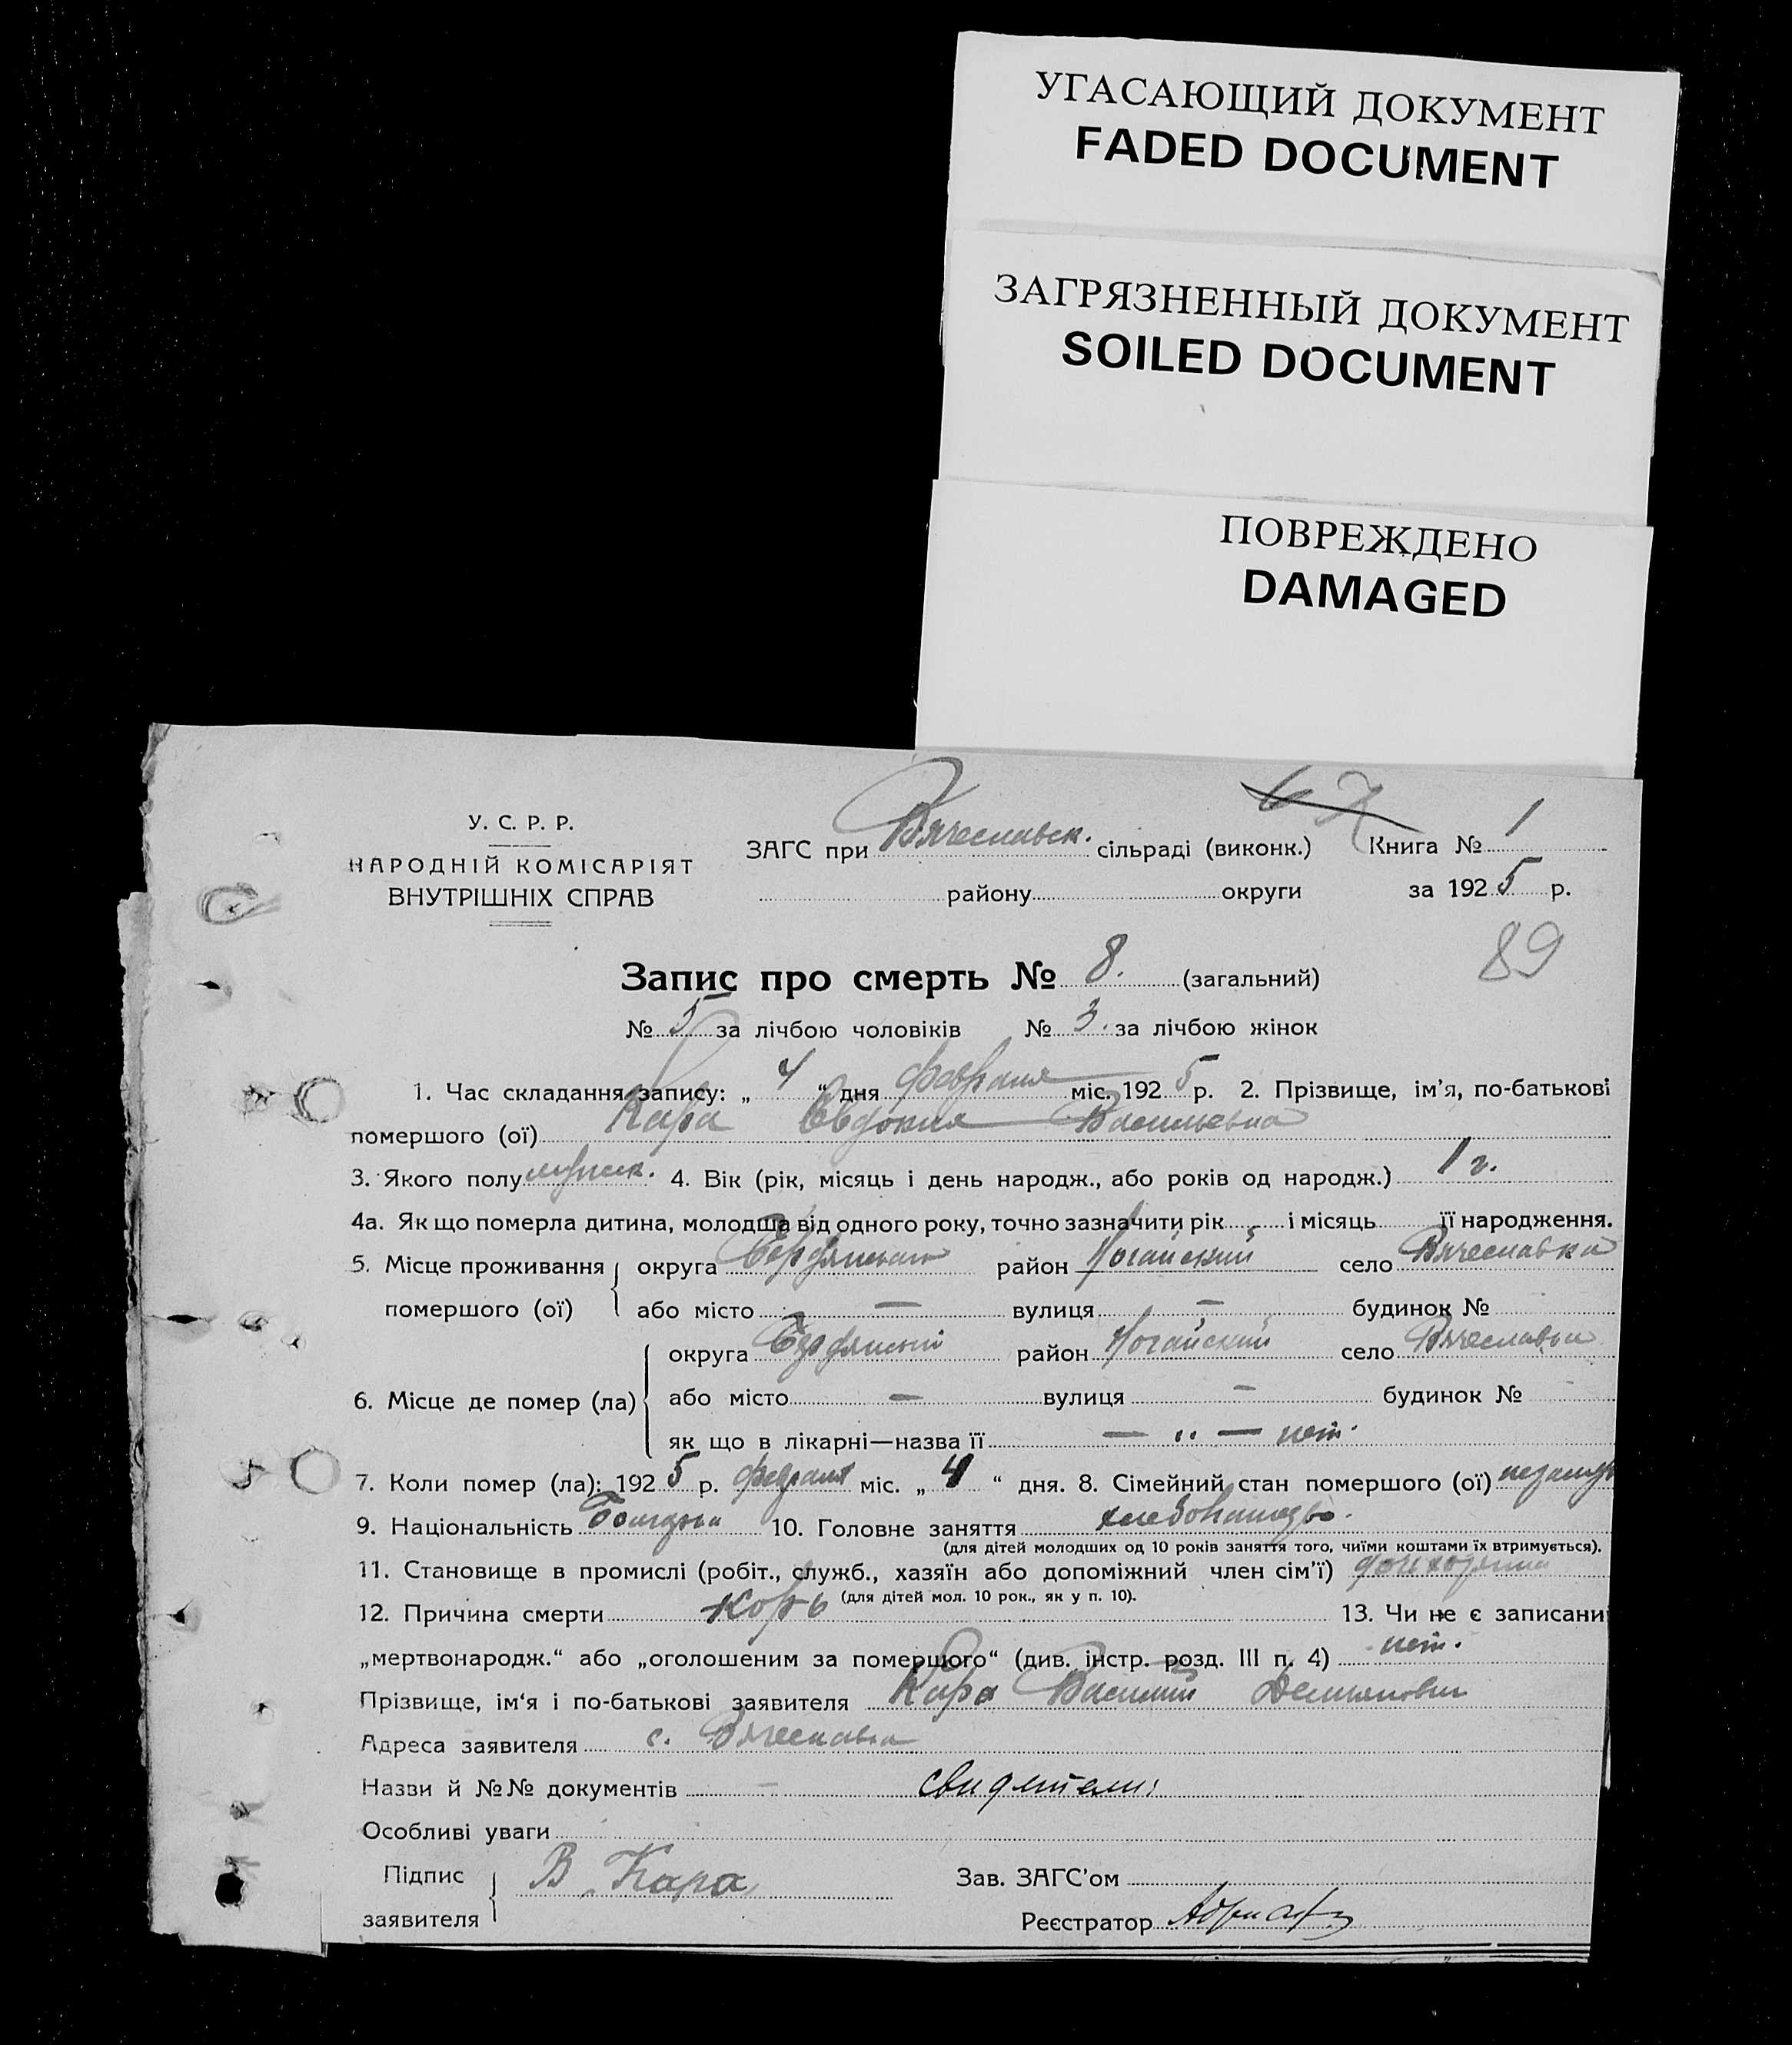 УГАСАЮЩИЙ ДОКУМЕНТ
FADED DOCUMENT
ЗАГРЯЗНЕННЫЙ ДОКУМЕНТ
SOILED DOCUMENT
ПОВРЕЖДЕНО
DAMAGED
У. С. Р. Р.
НАРОДНІЙ КОМІСАРІЯТ
ВНУТРІШНІХ СПРАВ
ЗАГС при Вячеславск. сільраді (виконк.) Книга № 1
району округи за 1925 р.
89
Запис про смерть № 8. (загальний)
№ 5 за лічбою чоловіків № 3. за лічбою жінок
1. Час складання запису: „ 4 “ дня февраля міс. 1925 р. 2. Прізвище, ім’я, по-батькові
помершого (ої) Кара Евдокия Васильевна
3. Якого полу 4. Вік (рік, місяць і день народж., або років од народж.) 1 г.
4а. Як що померла дитина, молодша від одного року, точно зазначити рік і місяць її народження.
5. Місце проживання помершого (ої) округа Бердянский район Ногайский село Вячеславка
або місто — вулиця — будинок №
6. Місце де помер (ла) округа Бердянский район Ногайский село Вячеславка
або місто — вулиця — будинок №
як що в лікарні—назва її — „ — нет.
7. Коли помер (ла): 1925 р. февраля міс. „ 4 “ дня. 8. Сімейний стан помершого (ої)
9. Національність 10. Головне заняття хлебопашество.
(для дітей молодших од 10 років заняття того, чиїми коштами їх втримується).
11. Становище в промислі (робіт., служб., хазяїн або допоміжний член сім’ї)
(для дітей мол. 10 рок., як у п. 10).
12. Причина смерти корь 13. Чи не є записани
„мертвонародж.“ або „оголошеним за помершого“ (див. інстр. розд. III п. 4) нет.
Прізвище, ім‘я і по-батькові заявителя Кара Василий Демьянович
Адреса заявителя с. Вячеславка
Назви й №№ документів — свидетели:
Особливі уваги
Підпис заявителя В. Кара
Зав. ЗАГС’ом
Реєстратор